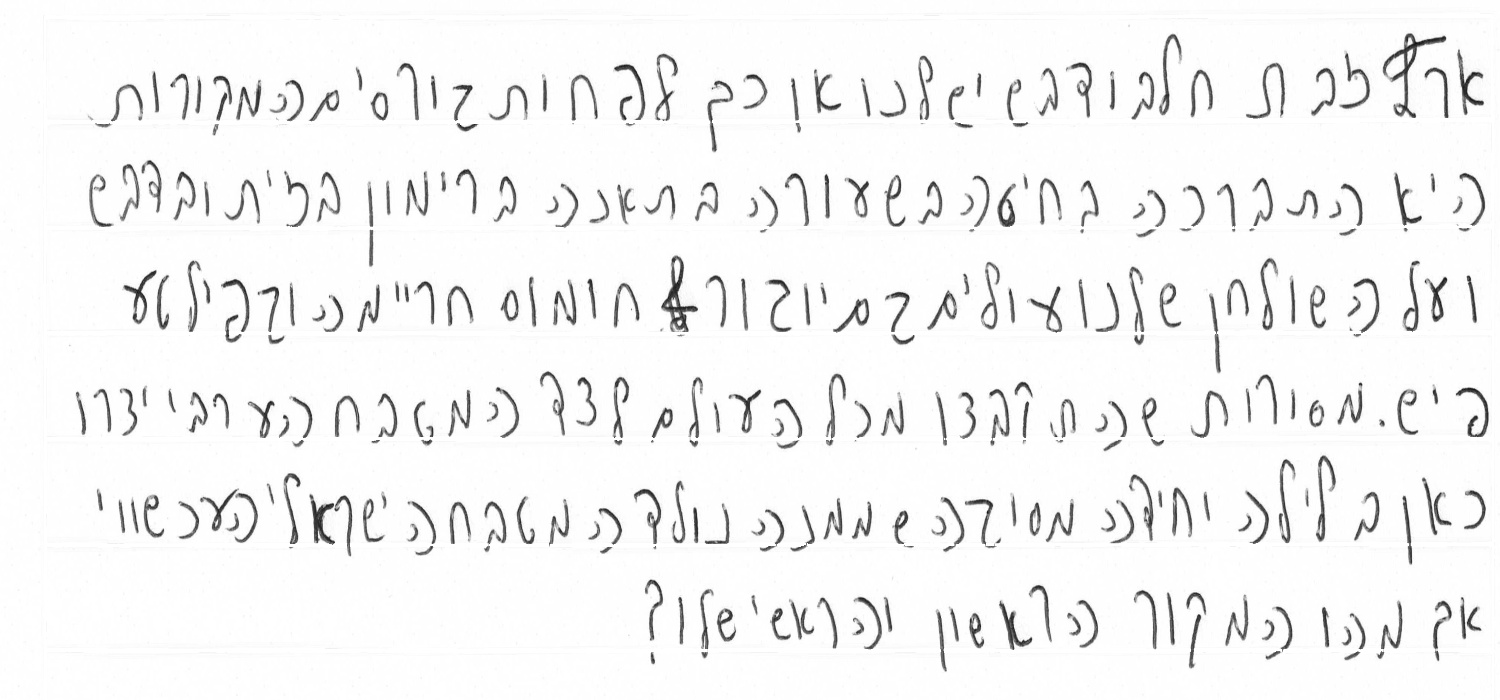 ארץ זבת חלב ודבש יש לנו אן כך לפחות גורסים המקורות
היא התברכה בחיטה בשעורה בתאנה ברימון בזית ובדבש
ועל השולחן שלנו עולים גם יוגורט חומוס חריימה וגפילטע
פיש. מסורות שהתקבצו מכל העולם לצד המטבח הערבי יצרו
כאן בלילה יחידה מסורה שממנה נולד המטבח הישראלי העכשווי
אך מהו המקור הראשון והראשי שלו?